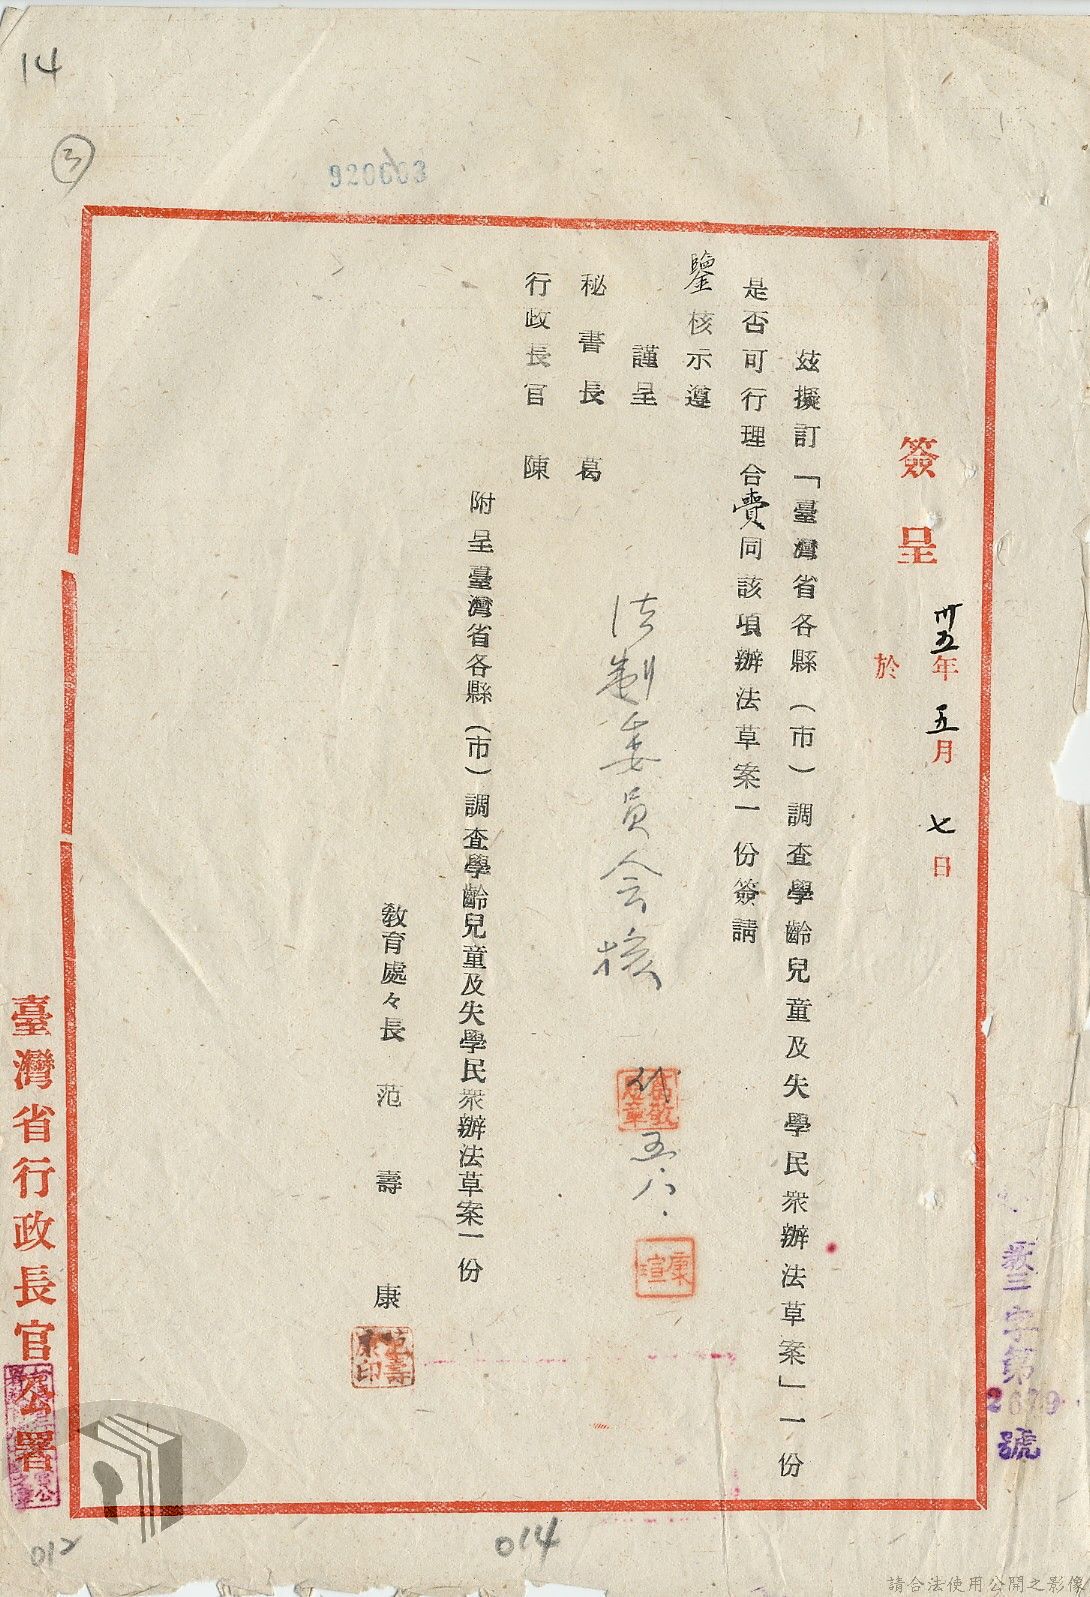 14
3
920603
簽呈
卅五年五月七日
於
茲擬訂「臺灣省各縣（市）調查學齡兒童及失學民衆辦法草案」一份
是否可行理合賫同該項辦法草案一份簽請
鑒核示遵
謹呈
秘書長 葛
行政長官 陳
法制委員會核
代 五、八、
康瑄
附呈臺灣省各縣（市）調查學齡兒童及失學民衆辦法草案一份
教育處々長 范壽康
范壽康印
臺灣省行政長官公署
教三字第2679號
014
012
請合法使用公開之影像